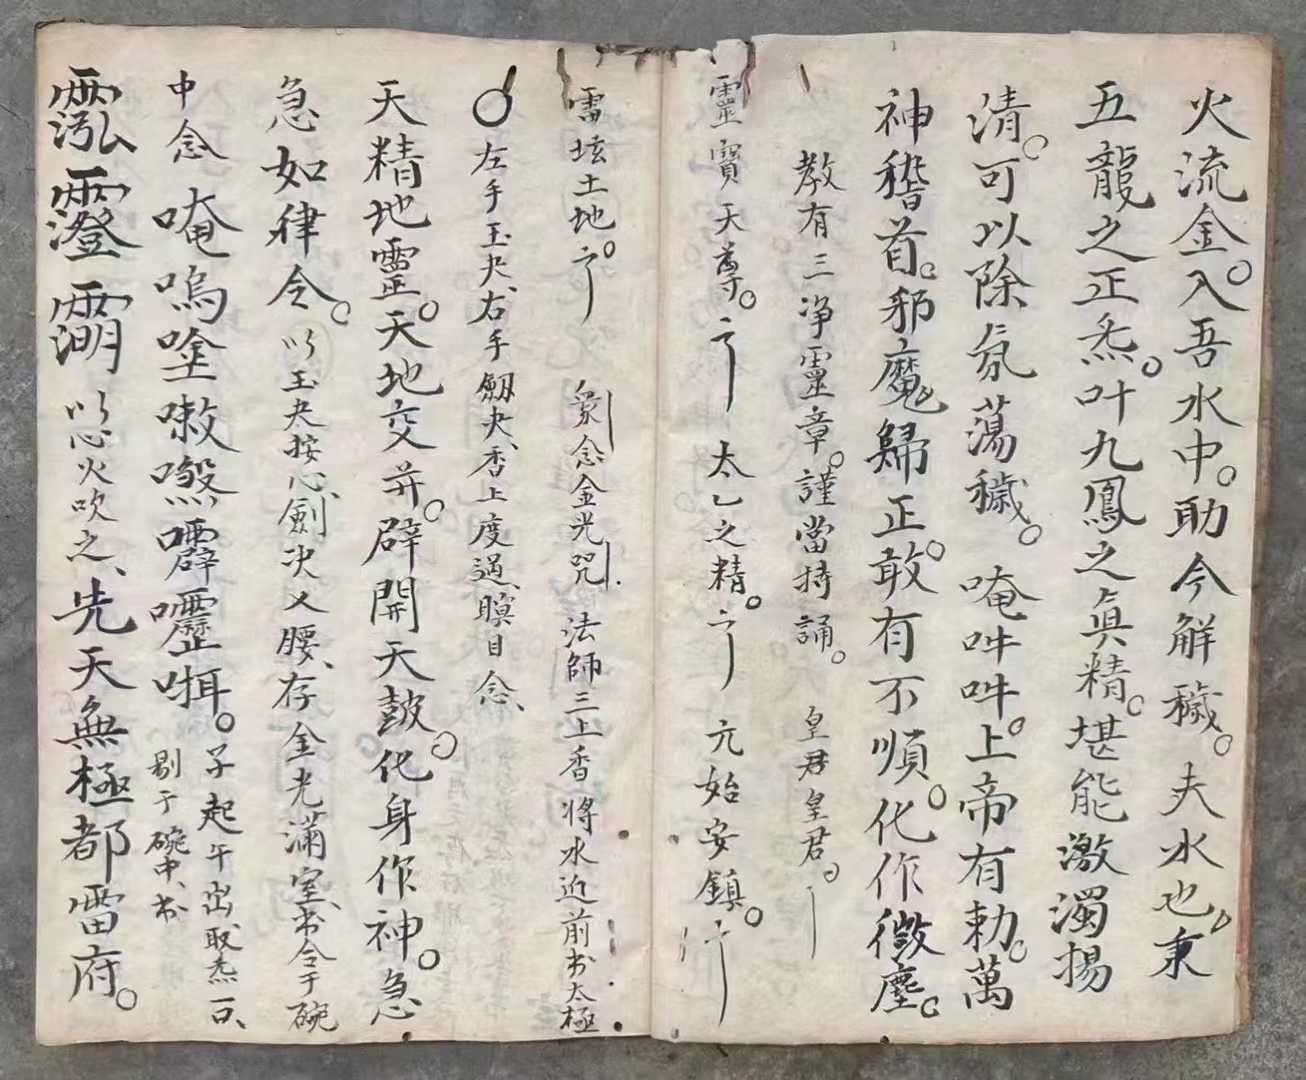 火流金。入吾水中。助今解穢。夫水也。秉
五龍之正炁。叶九鳳之真精。堪能激濁揚
清。可以除氛蕩穢。唵吽吽。上帝有勅。萬
神稽首。邪魔歸正。敢有不順。化作微塵。
教有三净靈章。謹當持誦。皇君皇君。
靈寶天尊。太乙之精。元始安鎮。
雷坛土地。眾念金光咒。法師三上香將水近前书太極
○左手玉夬、右手劔夬、香上度過、瞑目念、
天精地靈。天地交并。辟開天鼓。化身作神。急
急如律令。以玉夬按心、劍决乂腰、存金光滿室、书令于碗
中念唵嗚㗌嗽 子起午出、取炁一口、
剔于碗中、书
以心火吹之、先天無極都雷府。